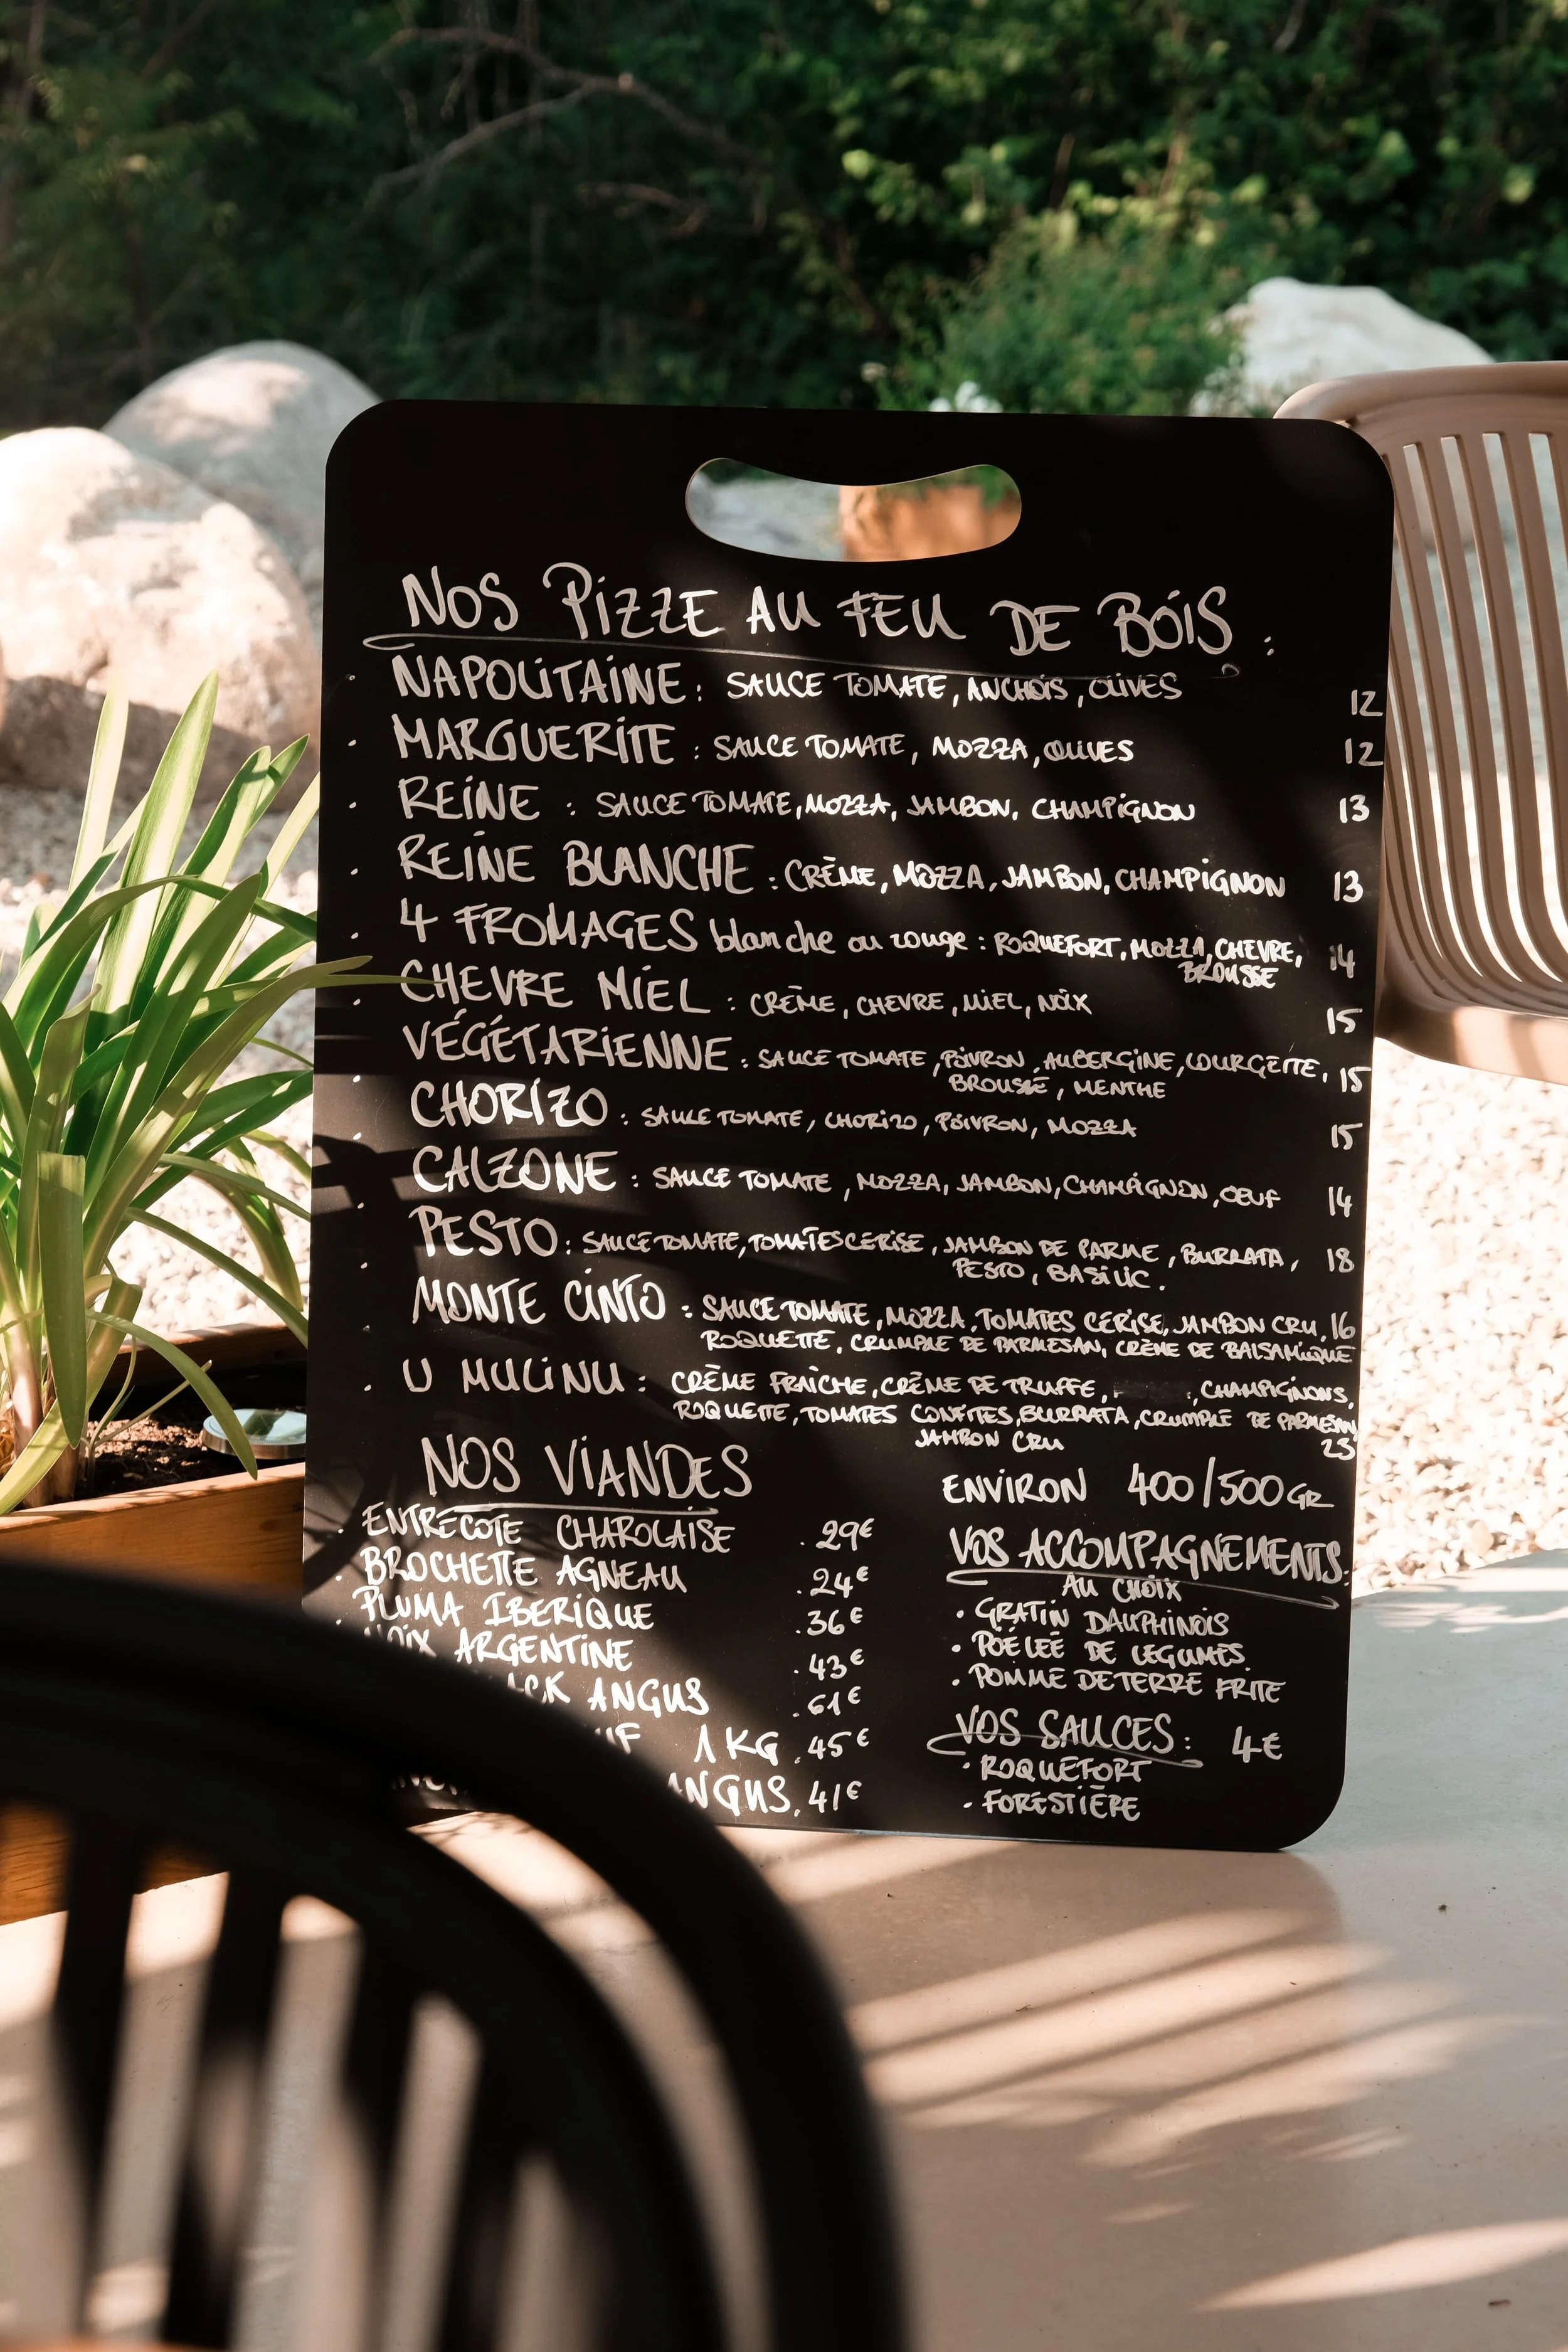 NOS PIZZE AU FEU DE BOIS :
. NAPOLITAINE : SAUCE TOMATE, ANCHOIS, OLIVES 12
. MARGUERITE : SAUCE TOMATE, MOZZA, OLIVES 12
. REINE : SAUCE TOMATE, MOZZA, JAMBON, CHAMPIGNON 13
. REINE BLANCHE : CRÈME, MOZZA, JAMBON, CHAMPIGNON 13
. 4 FROMAGES blanche ou rouge : ROQUEFORT, MOZZA, CHEVRE, 14
BROUSSE
. CHEVRE MIEL : CRÈME, CHEVRE, MIEL, NOIX 15
. VÉGÉTARIENNE : SAUCE TOMATE, POIVRON, AUBERGINE, COURGETTE, 15
BROUSSE, MENTHE
. CHORIZO : SAUCE TOMATE, CHORIZO, POIVRON, MOZZA 15
. CALZONE : SAUCE TOMATE, MOZZA, JAMBON, CHAMPIGNON, OEUF 14
. PESTO : SAUCE TOMATE, TOMATES CERISE, JAMBON DE PARME, BURRATA, 18
PESTO, BASILIC.
. MONTE CINTO : SAUCE TOMATE, MOZZA, TOMATES CERISE, JAMBON CRU, 16
ROQUETTE, CRUMPLE DE PARMESAN, CRÈME DE BALSAMIQUE
. U MULINU : CRÈME FRAÎCHE, CRÈME DE TRUFFE, , CHAMPIGNONS,
ROQUETTE, TOMATES CONFITES, BURRATA, CRUMPLE DE PARMESAN,
JAMBON CRU 23
NOS VIANDES
. ENTRECOTE CHAROLAISE . 29€
. BROCHETTE AGNEAU . 24€
. PLUMA IBERIQUE . 36€
NOIX ARGENTINE . 43€
ANGUS . 61€
1KG . 45€
ANGUS . 41€
ENVIRON 400/500GR
VOS ACCOMPAGNEMENTS :
AU CHOIX
. GRATIN DAUPHINOIS
. POÊLEE DE LEGUMES
. POMME DE TERRE FRITE
VOS SAUCES : 4€
. ROQUEFORT
. FORESTIÈRE